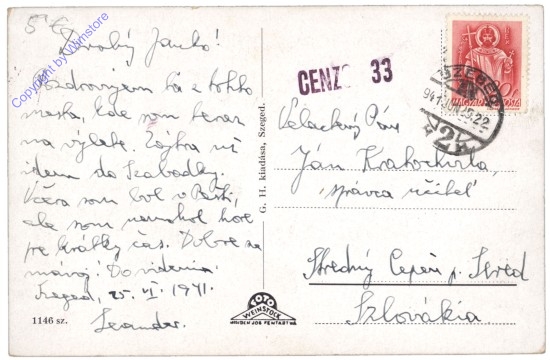 5 €
Copyright by Weinstore
Drahý Janko!
Pozdravujem ťa z tohto
mesta, kde som teraz
na výlete. Zajtra už
idem do Szabadky.
Včera som bol v Pešti,
ale som nemohol
pre krátky čas. Dobre sa
Do videnia
Szeged, 25. VI. 1941.
1146 sz.
G. H. kiadása, Szeged.
FOTO
WEINSTOCK
MINDEN JOG FENTARTVA
CENZ 33
MAGYAR POSTA
SZEGED
941 JUN 25 22
Velactený Pán
Ján
správca učiteľ
Stredný Čepeň p. Sereď
Szlovákia